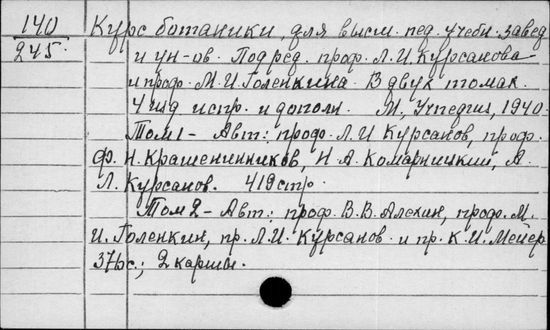 140 Курс ботаники, для высш. пед. учебн. завед
245. и ун-ов. Под ред. проф. Л. И. Курсанова
и проф. М. И. Голенкина. В двух томах.
4 изд испр. и дополн. М., Учпедгиз, 1940.
Том 1 - Авт: проф. Л. И Курсанов, проф.
Ф. Н. Крашенинников, Н А. Комарницкий, А
Л. Курсанов. 419 стр.
Том 2 - Авт: проф. В. В. Алехин, проф. М.
И. Голенкин, пр. Л. И. Курсанов и пр. К. И. Мейер
376 с.; 2 карты.